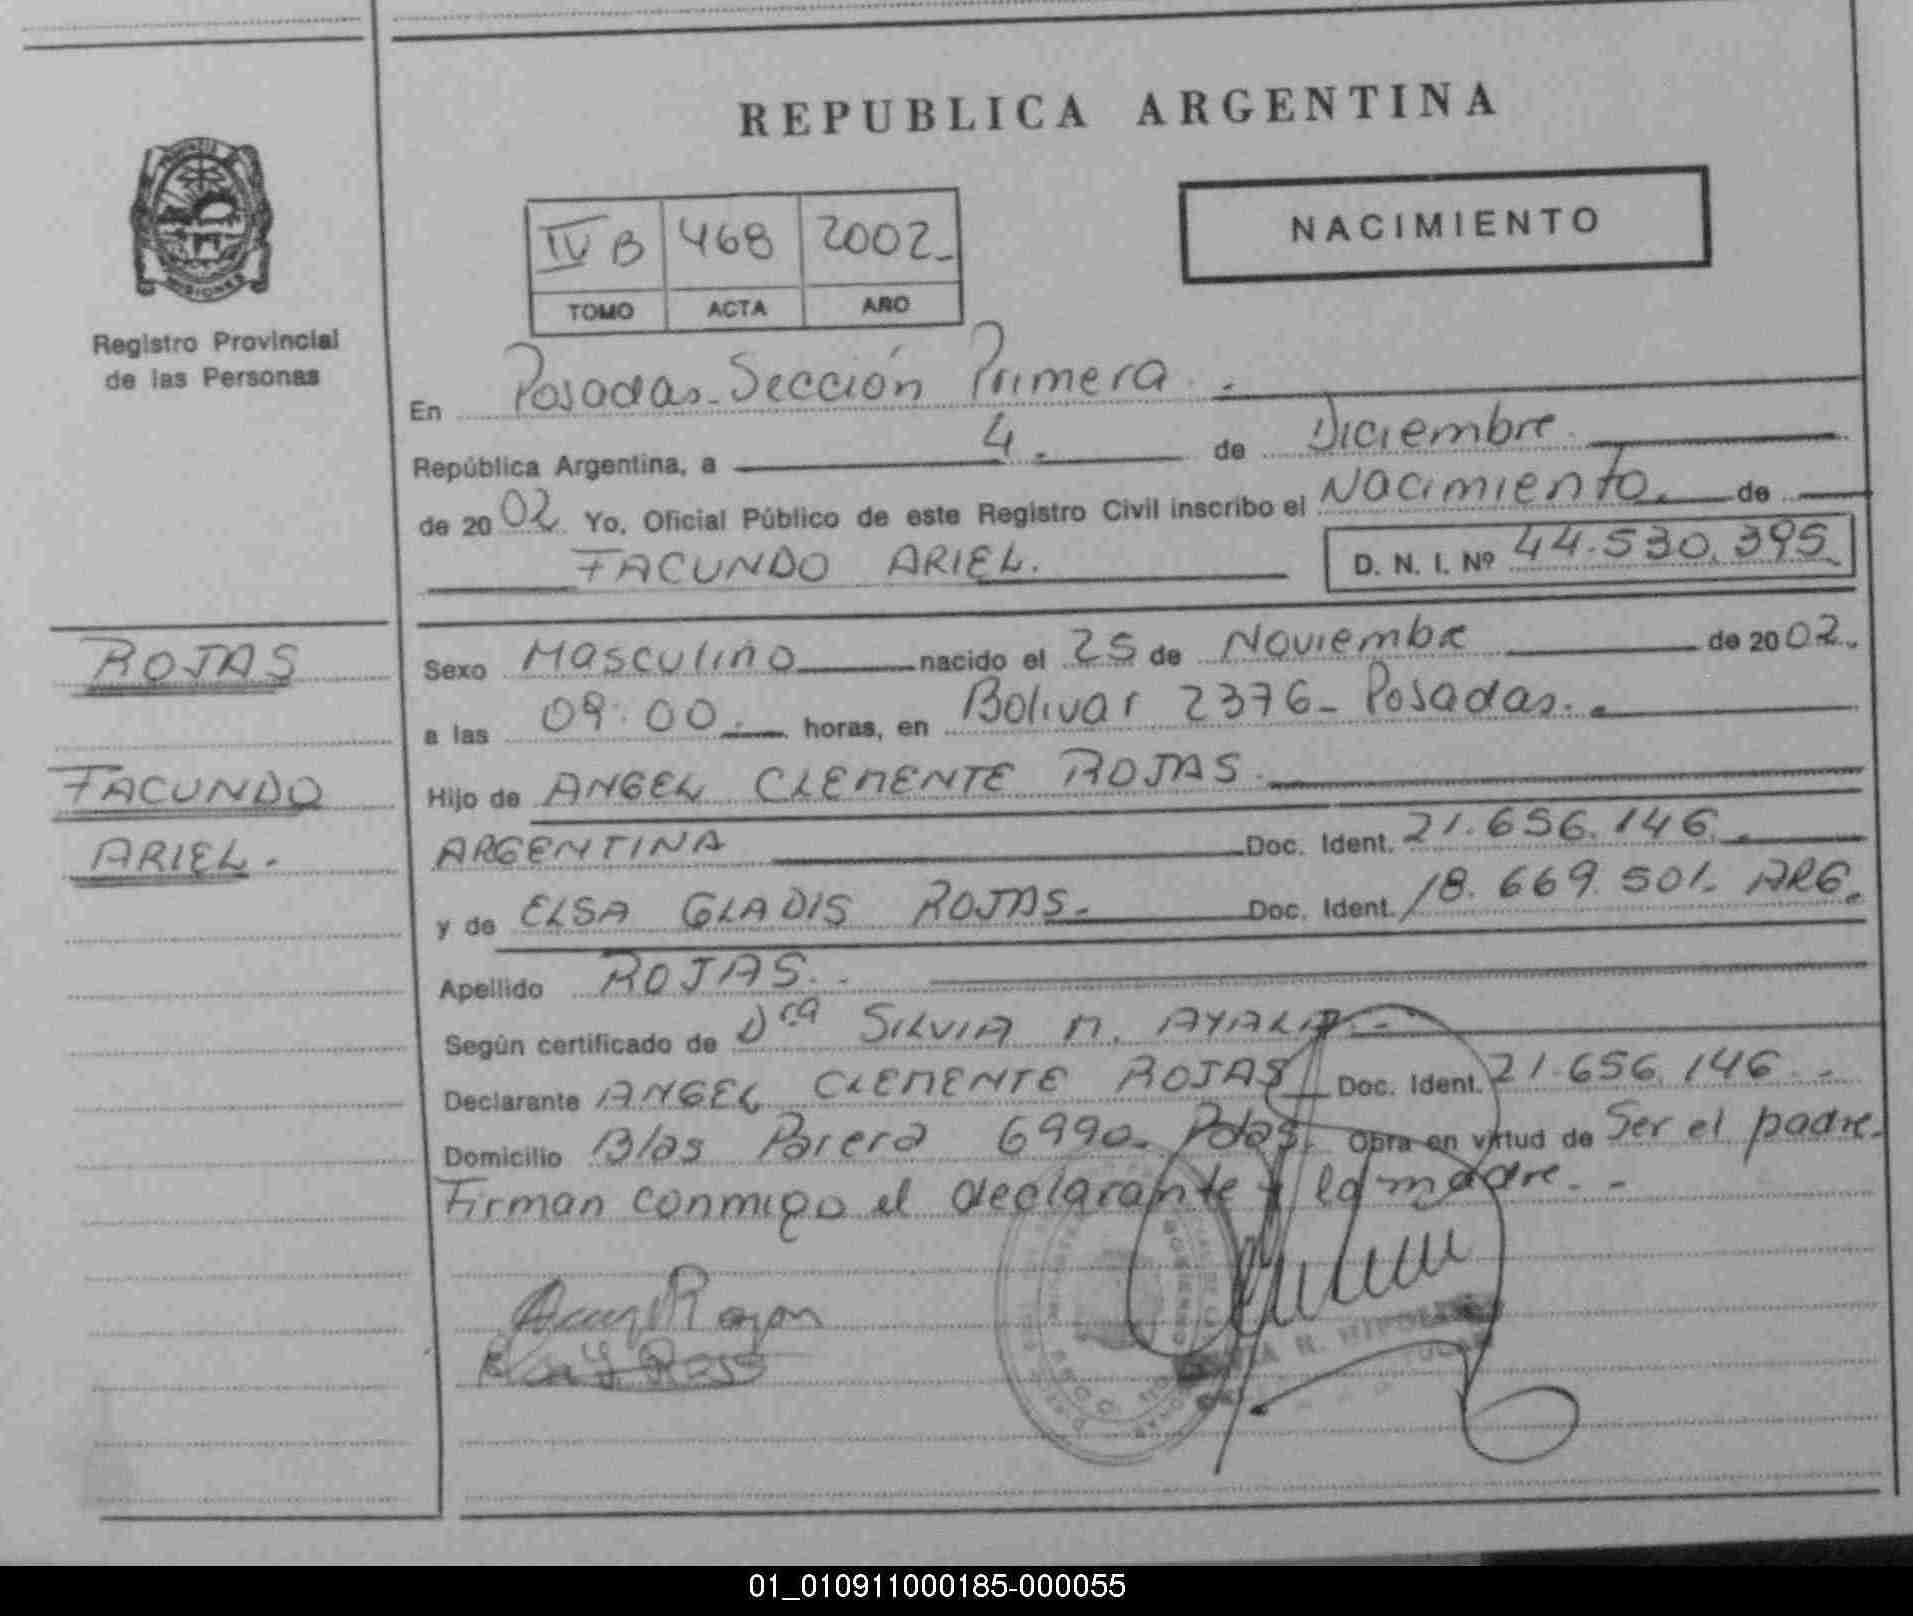 REPUBLICA ARGENTINA
PROVINCIA
MISIONES
Registro Provincial
de las Personas
IV B 468 2002
TOMO ACTA AÑO
NACIMIENTO
En Posadas. Sección Primera.
República Argentina, a 4. de Diciembre
de 2002 Yo, Oficial Público de este Registro Civil inscribo el Nacimiento. de
FACUNDO ARIEL.
D. N. I. Nº 44.530.395
ROJAS
FACUNDO
ARIEL.
Sexo Masculino nacido el 25 de Noviembre de 2002.
a las 09:00. horas, en Bolivar 2376_ Posadas.
Hijo de ANGEL CLEMENTE ROJAS.
ARGENTINA Doc. Ident. 21.656.146.
y de ELSA GLADIS ROJAS. Doc. Ident. 18.669.501. ARG.
Apellido ROJAS.
Según certificado de Dra SILVIA M. AYALA.
Declarante ANGEL CLEMENTE ROJAS Doc. Ident. 21.656.146
Domicilio Blas Parera 6990_ Pdas. Obra en virtud de Ser el padre.
Firman conmigo el declarante y la madre.
01_010911000185-000055